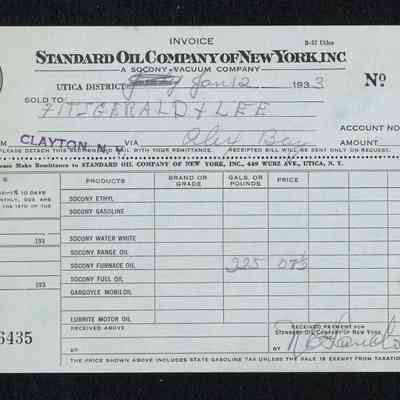 INVOICE
B-32 Utica
STANDARD OIL COMPANY OF NEW YORK, INC.
A SOCONY-VACUUM COMPANY
UTICA DISTRICT Jan 12 1933 Nº
SOLD TO FITZGERALD & LEE
ACCOUNT NO
CLAYTON, N.Y.
M VIA AMOUNT
PLEASE DETACH THIS MAIL WITH YOUR REMITTANCE. RECEIPTED BILL WILL BE SENT ONLY ON REQUEST.
ease Make Remittance to STANDARD OIL COMPANY OF NEW YORK, INC., 449 WURZ AVE., UTICA, N. Y.
PRODUCTS BRAND OR GRADE GALS. OR POUNDS PRICE
1% 10 DAYS
MONTHLY, DUE ARE
THE 10TH OF THE
SOCONY ETHYL
SOCONY GASOLINE
193
SOCONY WATER WHITE
SOCONY RANGE OIL
SOCONY FURNACE OIL 225 075
193 SOCONY FUEL OIL
GARGOYLE MOBILOIL
LUBRITE MOTOR OIL
6435
RECEIVED ABOVE
RECEIVED PAYMENT FOR
STANDARD OIL COMPANY OF NEW YORK
BY BY
THE PRICE SHOWN ABOVE INCLUDES STATE GASOLINE TAX UNLESS THE SALE IS EXEMPT FROM TAXATION